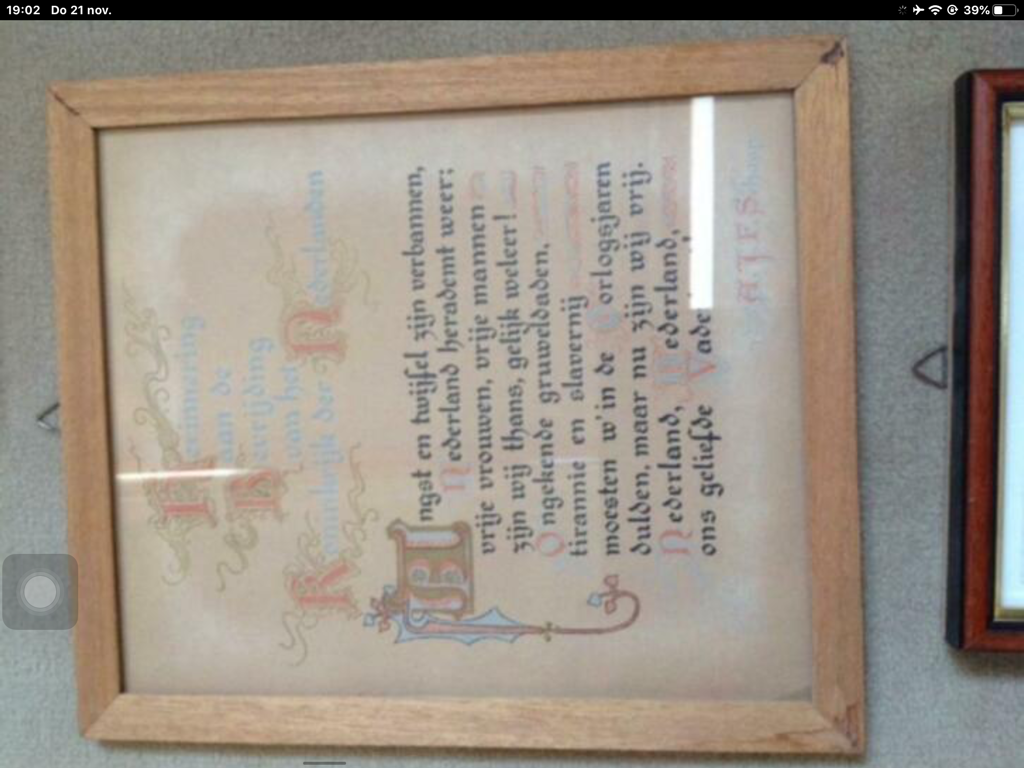 19:02 Do 21 nov.
39%
Herinnering
aan de
Bevrijding
van het
Koninkrijk der Nederlanden
Angst en twijfel zijn verbannen,
Nederland herademt weer;
vrije vrouwen, vrije mannen
zijn wij thans, gelijk weleer!
Ongekende gruweldaden,
tirannie en slavernij
moesten w'in de Oorlogsjaren
dulden, maar nu zijn wij vrij.
Nederland, Nederland,
ons geliefde